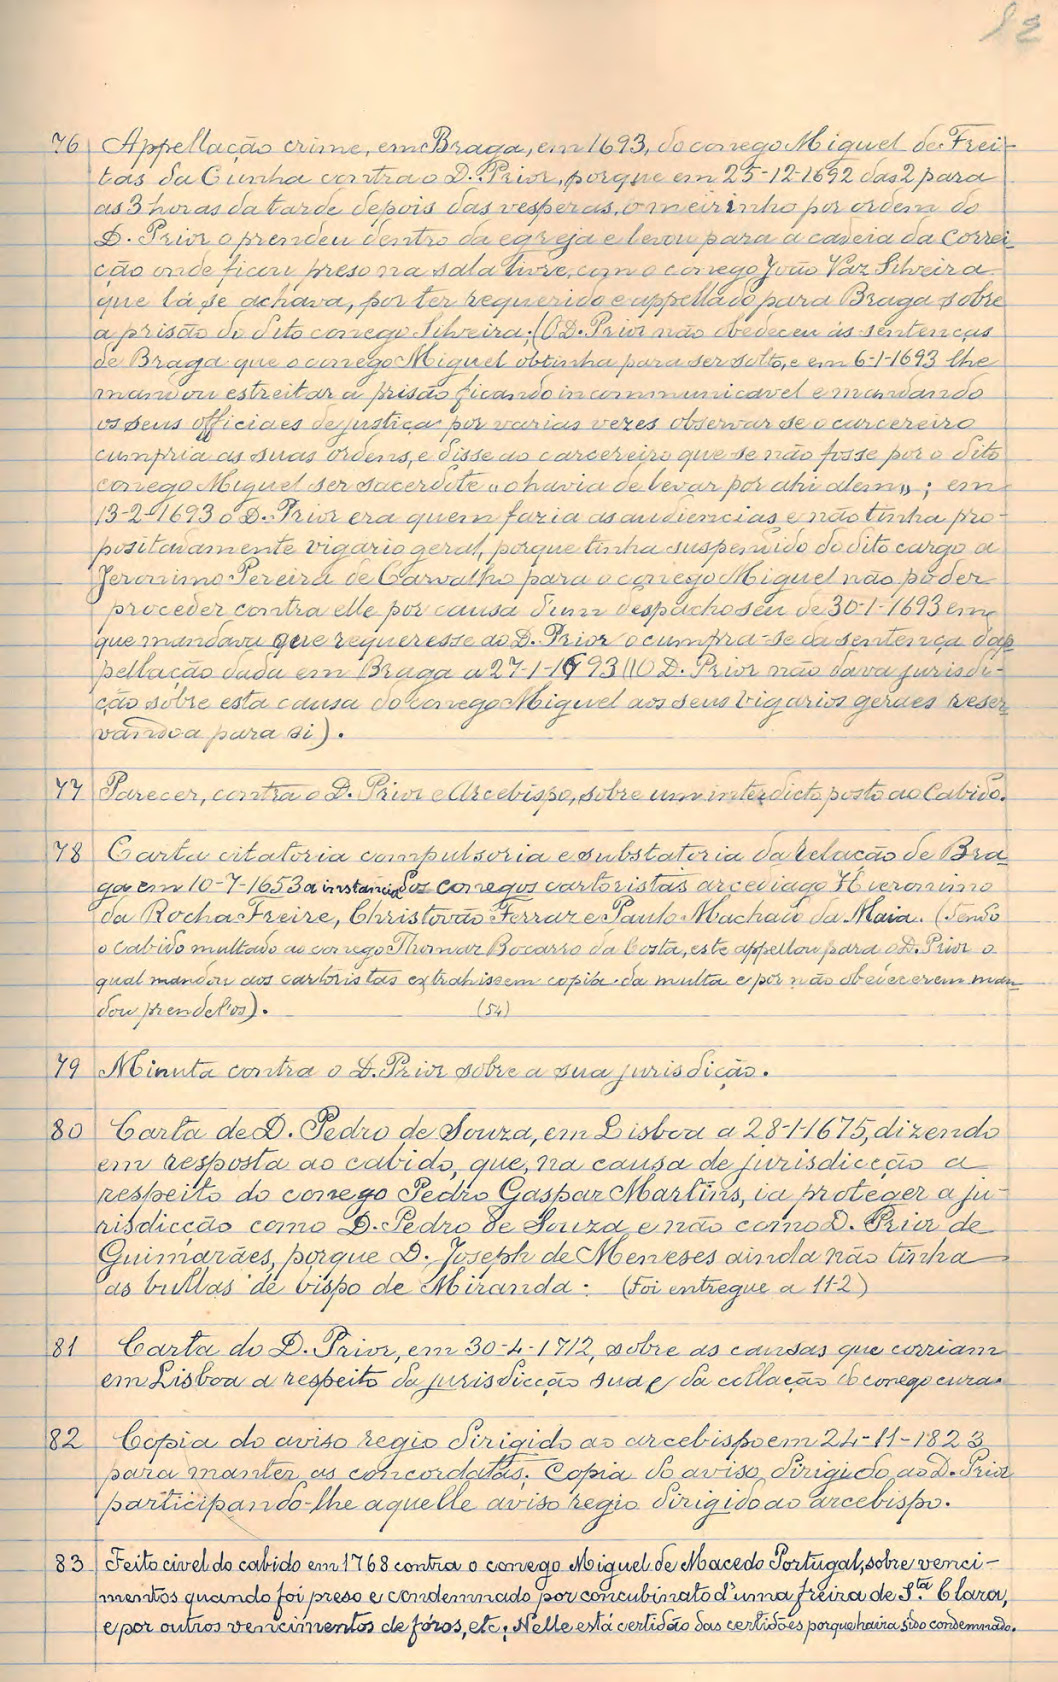 82
76 Appellação crime, em Braga, em 1693, do conego Miguel de Frei-
tas da Cunha contra o D. Prior, porque em 25-12-1692 das 2 para
as 3 horas da tarde depois das vesperas, o meirinho por ordem do
D. Prior o prendeu dentro da egreja e levou para a cadeia da Correi-
ção onde ficou preso na sala livre, com o conego João Vaz Silveira
que lá se achava, por ter requerido e appellado para Braga sobre
a prisão do dito conego Silveira; (O D. Prior não obedeceu ás sentenças
de Braga que o conego Miguel obtinha para ser solto, e em 6-1-1693 lhe
mandou estreitar a prisão ficando incommunicavel e mandando
os seus officiaes de justiça por varias vezes observar se o carcereiro
cumpria as suas ordens, e disse ao carcereiro que se não fosse por o dito
conego Miguel ser sacerdote „o havia de levar por ahi alem„; em
13-2-1693 o D. Prior era quem fazia as audiencias e não tinha pro-
positadamente vigario geral, porque tinha suspendido do dito cargo a
Jeronimo Pereira de Carvalho para o conego Miguel não poder
proceder contra elle por causa d'um despacho seu de 30-1-1693 em
que mandava que requeresse ao D. Prior o cumpra-se da sentença d'ap-
pellação dada em Braga a 27-1-1693 (O D. Prior não dava jurisdi-
ção sobre esta causa do conego Miguel aos seus vigarios geraes reser-
vando a para si).
77 Parecer, contra o D. Prior e Arcebispo, sobre um interdicto posto ao Cabido.
78 Carta citatoria compulsoria e substatoria da relação de Bra-
ga em 10-7-1653 a instancia dos conegos cartoristas arcediago Hieronimo
da Rocha Freire, Christovão Ferraz e Paulo Machado da Maia. (Tendo
o cabido multado ao conego Thomaz Bocarro da Costa, este appellou para o D. Prior o
qual mandou aos cartoristas extrahissem copia da multa e por não obedecerem man-
dou prendel'os). (54)
79 Minuta contra o D. Prior sobre a sua jurisdição.
80 Carta de D. Pedro de Souza, em Lisboa a 28-1-1675, dizendo
em resposta ao cabido, que, na causa de jurisdicção a
respeito do conego Pedro Gaspar Martins, ia proteger a ju-
risdicção como D. Pedro de Souza e não como D. Prior de
Guimarães, porque D. Joseph de Meneses ainda não tinha
as bullas de bispo de Miranda. (Foi entregue a 11-2)
81 Carta do D. Prior, em 30-4-1712, sobre as causas que corriam
em Lisboa a respeito da jurisdicção sua e da collação do conego cura.
82 Copia do aviso regio dirigido ao arcebispo em 24-11-1823
para manter as concordatas. Copia do aviso dirigido ao D. Prior
participando-lhe aquelle aviso regio dirigido ao arcebispo.
83 Feito civel do cabido em 1768 contra o conego Miguel de Macedo Portugal, sobre venci-
mentos quando foi preso e condemnado por concubinato d'uma freira de S.ta Clara,
e por outros vencimentos de fóros, etc; Nelle está certidão das certidões porque havia sido condemnado.